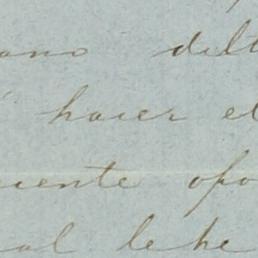 ano delt
hacer el
ciente opo
al le he